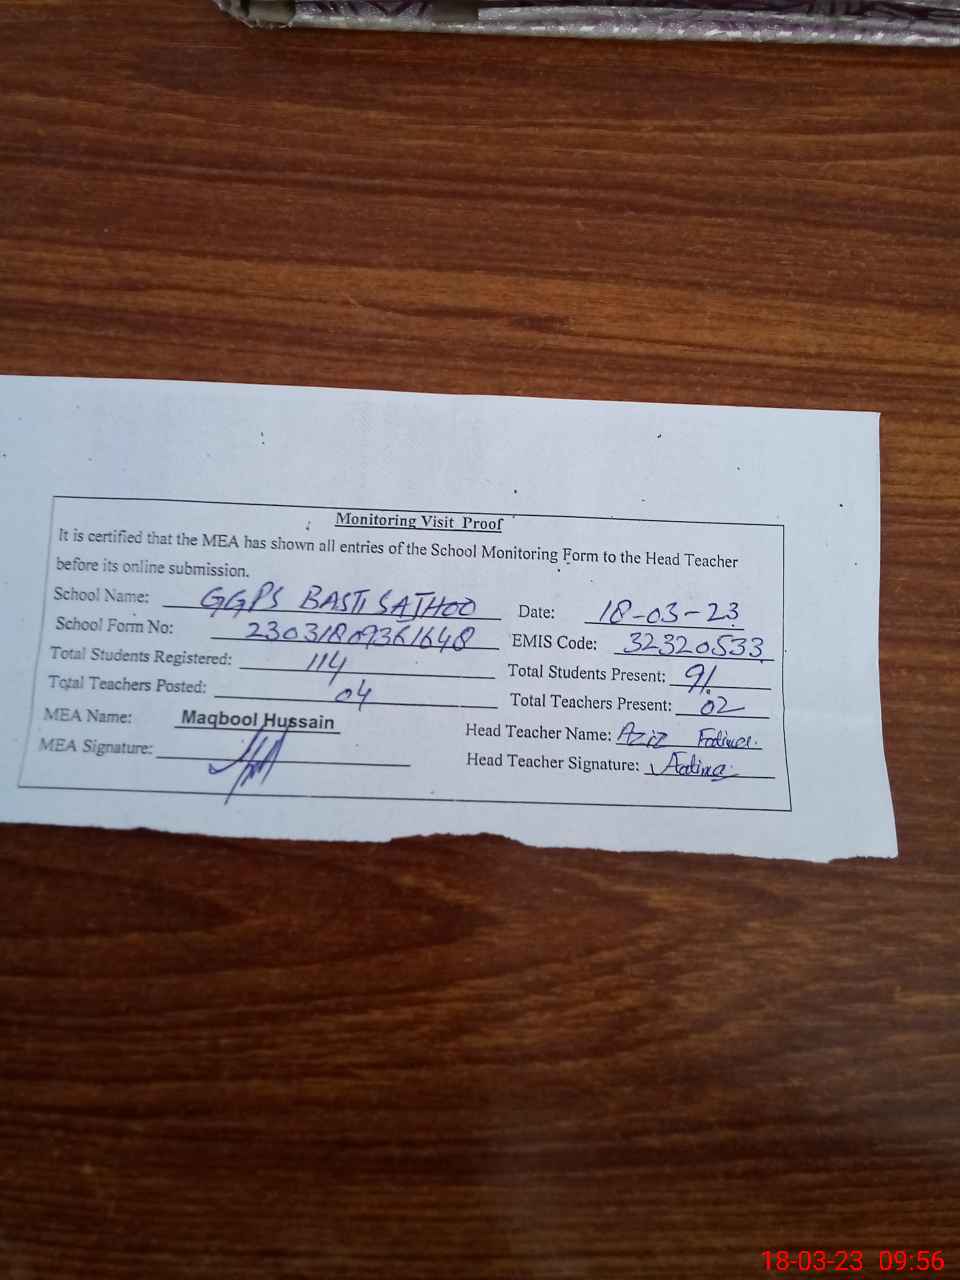 Monitoring Visit Proof
It is certified that the MEA has shown all entries of the School Monitoring Form to the Head Teacher
before its online submission.
School Name: GGPS BASTI SATHOO Date: 18-03-23
School Form No: 23031809361648 EMIS Code: 32320533
Total Students Registered: 114 Total Students Present: 91
Total Teachers Posted: 04 Total Teachers Present: 02
MEA Name: Maqbool Hussain Head Teacher Name: Aziz Fatima
MEA Signature: Head Teacher Signature:
18-03-23 09:56